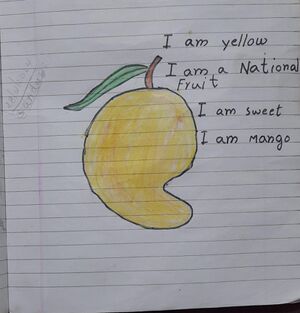 I am yellow
I am a National
Fruit
I am sweet
I am mango